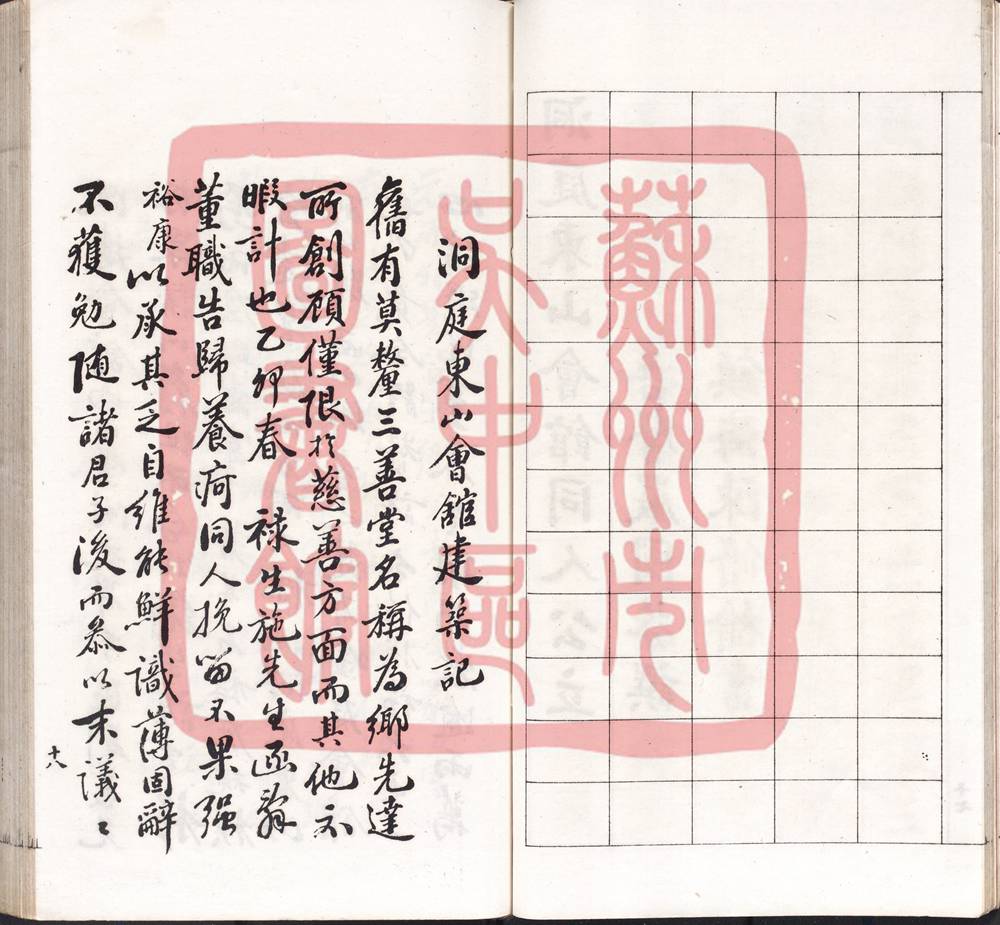 蘇州市
吳中區
圖書館
洞庭東山會館建築記
舊有莫釐三善堂名稱為鄉先達
所創顧僅限於慈善方面而其他不
暇計也乙卯春 祿生施先生函辭
董職告歸養疴同人挽留不果强
裕康以承其乏自維能鮮識薄固辭
不獲勉随諸君子後而叅以末議〻
十八